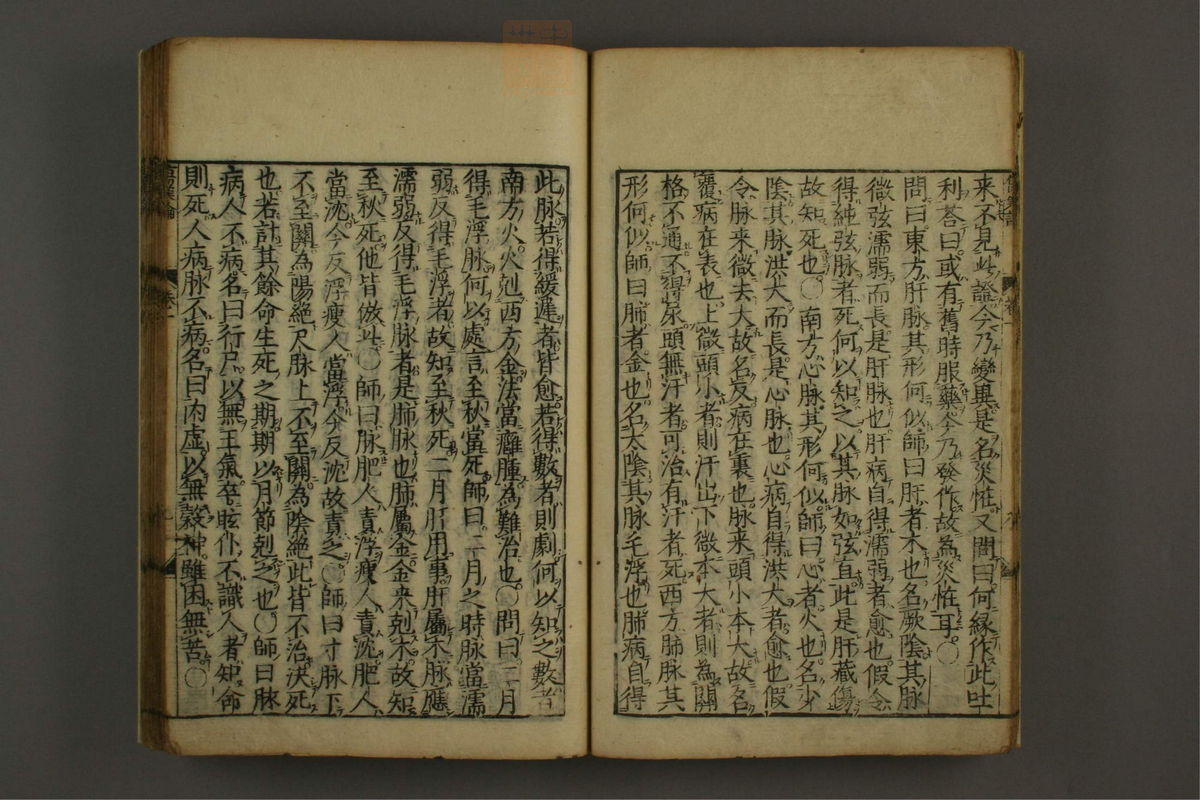 来不見此證今乃變異是名災恠又問曰何縁作此吐
利荅曰或有舊時服藥今乃發作故為災恠耳○
問曰東方肝脉其形何似師曰肝者木也名厥陰其脉
微弦濡弱而長是肝脉也肝病自得濡弱者愈也假令
得純弦脉者死何以知之以其脉如弦直此是肝藏傷
故知死也○南方心脉其形何似師曰心者火也名少
陰其脉洪大而長是心脉也心病自得洪大者愈也假
令脉来微去大故名反病在裏也脉来頭小本大故名
覆病在表也上微頭小者則汗出下微本大者則為關
格不通不得尿頭無汗者可治有汗者死西方肺脉其
形何似師曰肺者金也名太陰其脉毛浮也肺病自得
此脉若得緩遲者皆愈若得數者則劇何以知之數者
南方火火剋西方金法當癰腫為難治也○問曰二月
得毛浮脉何以處言至秋當死師曰二月之時脉當濡
弱反得毛浮者故知至秋死二月肝用事肝屬木脉應
濡弱反得毛浮脉者是肺脉也肺屬金金来剋木故知
至秋死他皆倣此○師曰脉肥人責浮瘦人責沈肥人
當沈今反浮瘦人當浮今反沈故責之○師曰寸脉下
不至關為陽絕尺脉上不至關為陰絕此皆不治决死
也若計其餘命生死之期期以月節剋之也○師曰脉
病人不病名曰行尸以無王氣卒眩仆不識人者短命
則死人病脉不病名曰内虛以無穀神雖困無苦○
卷一